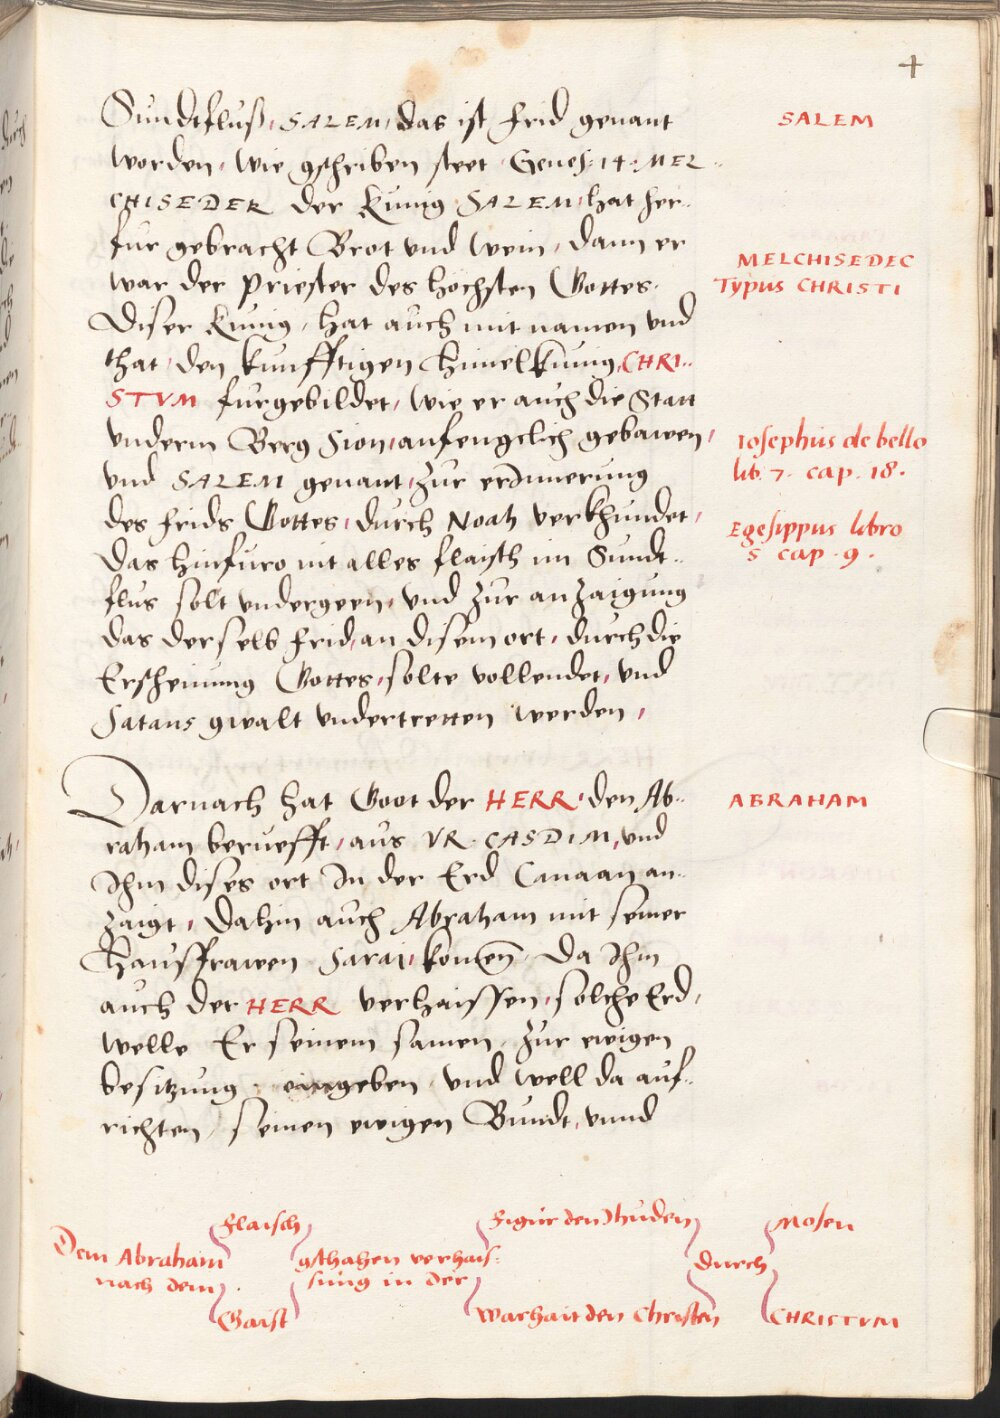 4
Sundtfluß, SALEM, das ist frid genant
worden, wie gschriben steet Genes: 14. MEL..
CHISEDEK der Kunig SALEM, hat her..
fur gebracht Brot vnd Wein, dann er
war der priester des höchsten Gottes.
Diser Kunig, hat auch mit namen vnd
that, den kunfftigen Himelkunig, CHRI..
STVM furgebildet, wie er auch die Statt
vnderm Berg Sion, anfengclich gebawen,
vnd SALEM genant, zur erInnerung
des frids Gottes, durch Noah verkhundet,
das hinfuro nit alles flaisch im Sundt..
flus solt vndergeen, vnd zur anzaigung
das derselb frid, an disem ort, durch die
Erscheinung Gottes, solte vollendet, vnd
Satans gwalt vndertretten werden,
SALEM
MELCHISEDEC
Typus CHRISTI
Iosephus de bello
lib. 7. cap. 18.
Egesippus libro
5 cap. 9.
Darnach hat Goot der HERR, den Ab..
raham berüefft, aus VR. CASDIM, vnd
Ihm dises ort In der Erd Canaan an..
zaigt, Dahin auch Abraham mit seiner
Hausffrawen Sarai, komen, Da Ihm
auch der HERR verhaissen, solche Erd,
welle Er seinem samen, zur ewigen
besitzung, eingeben, vnd well da auf..
richten, seinen ewigen Bundt, vnnd
ABRAHAM
Dem Abraham
nach dem
Flaisch
Gaist
gschahen verhais:
sung in der
Figur den Ihuden
Warhait den Christen
durch
Mosen
CHRISTVM